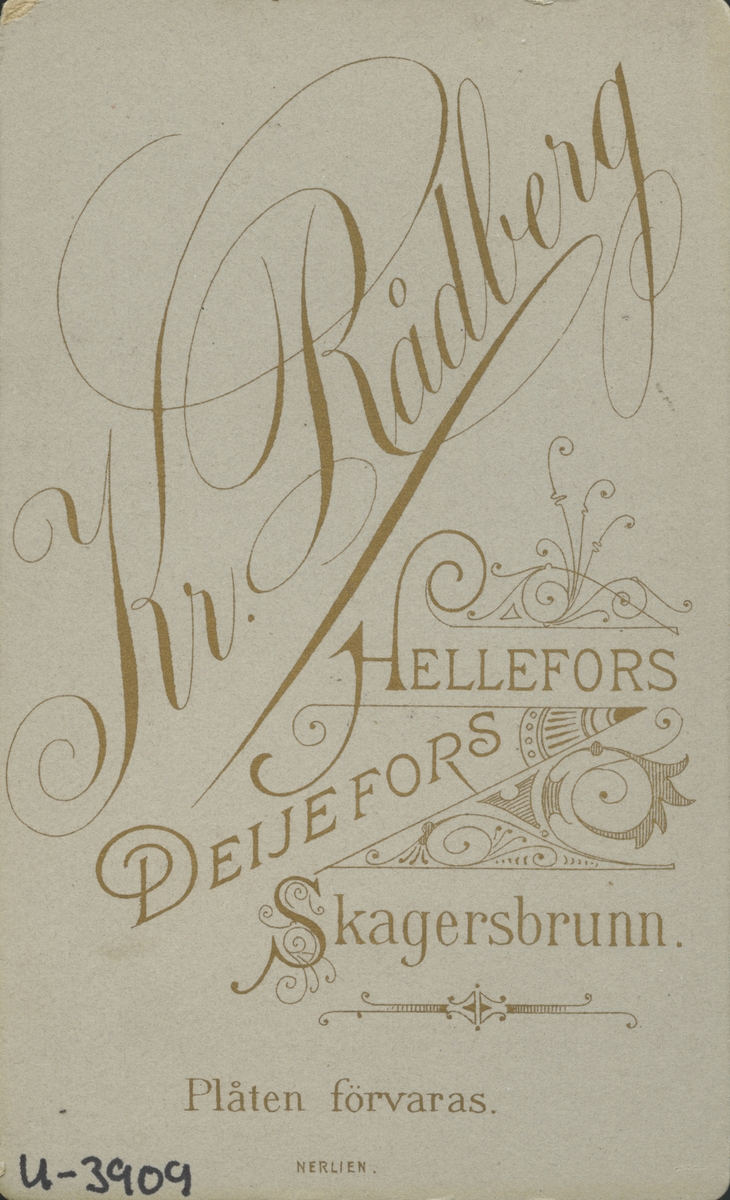 Kr. Rådberg
HELLEFORS
DEIJEFORS
Skagersbrunn.
Plåten förvaras.
U-3909
NERLIEN.